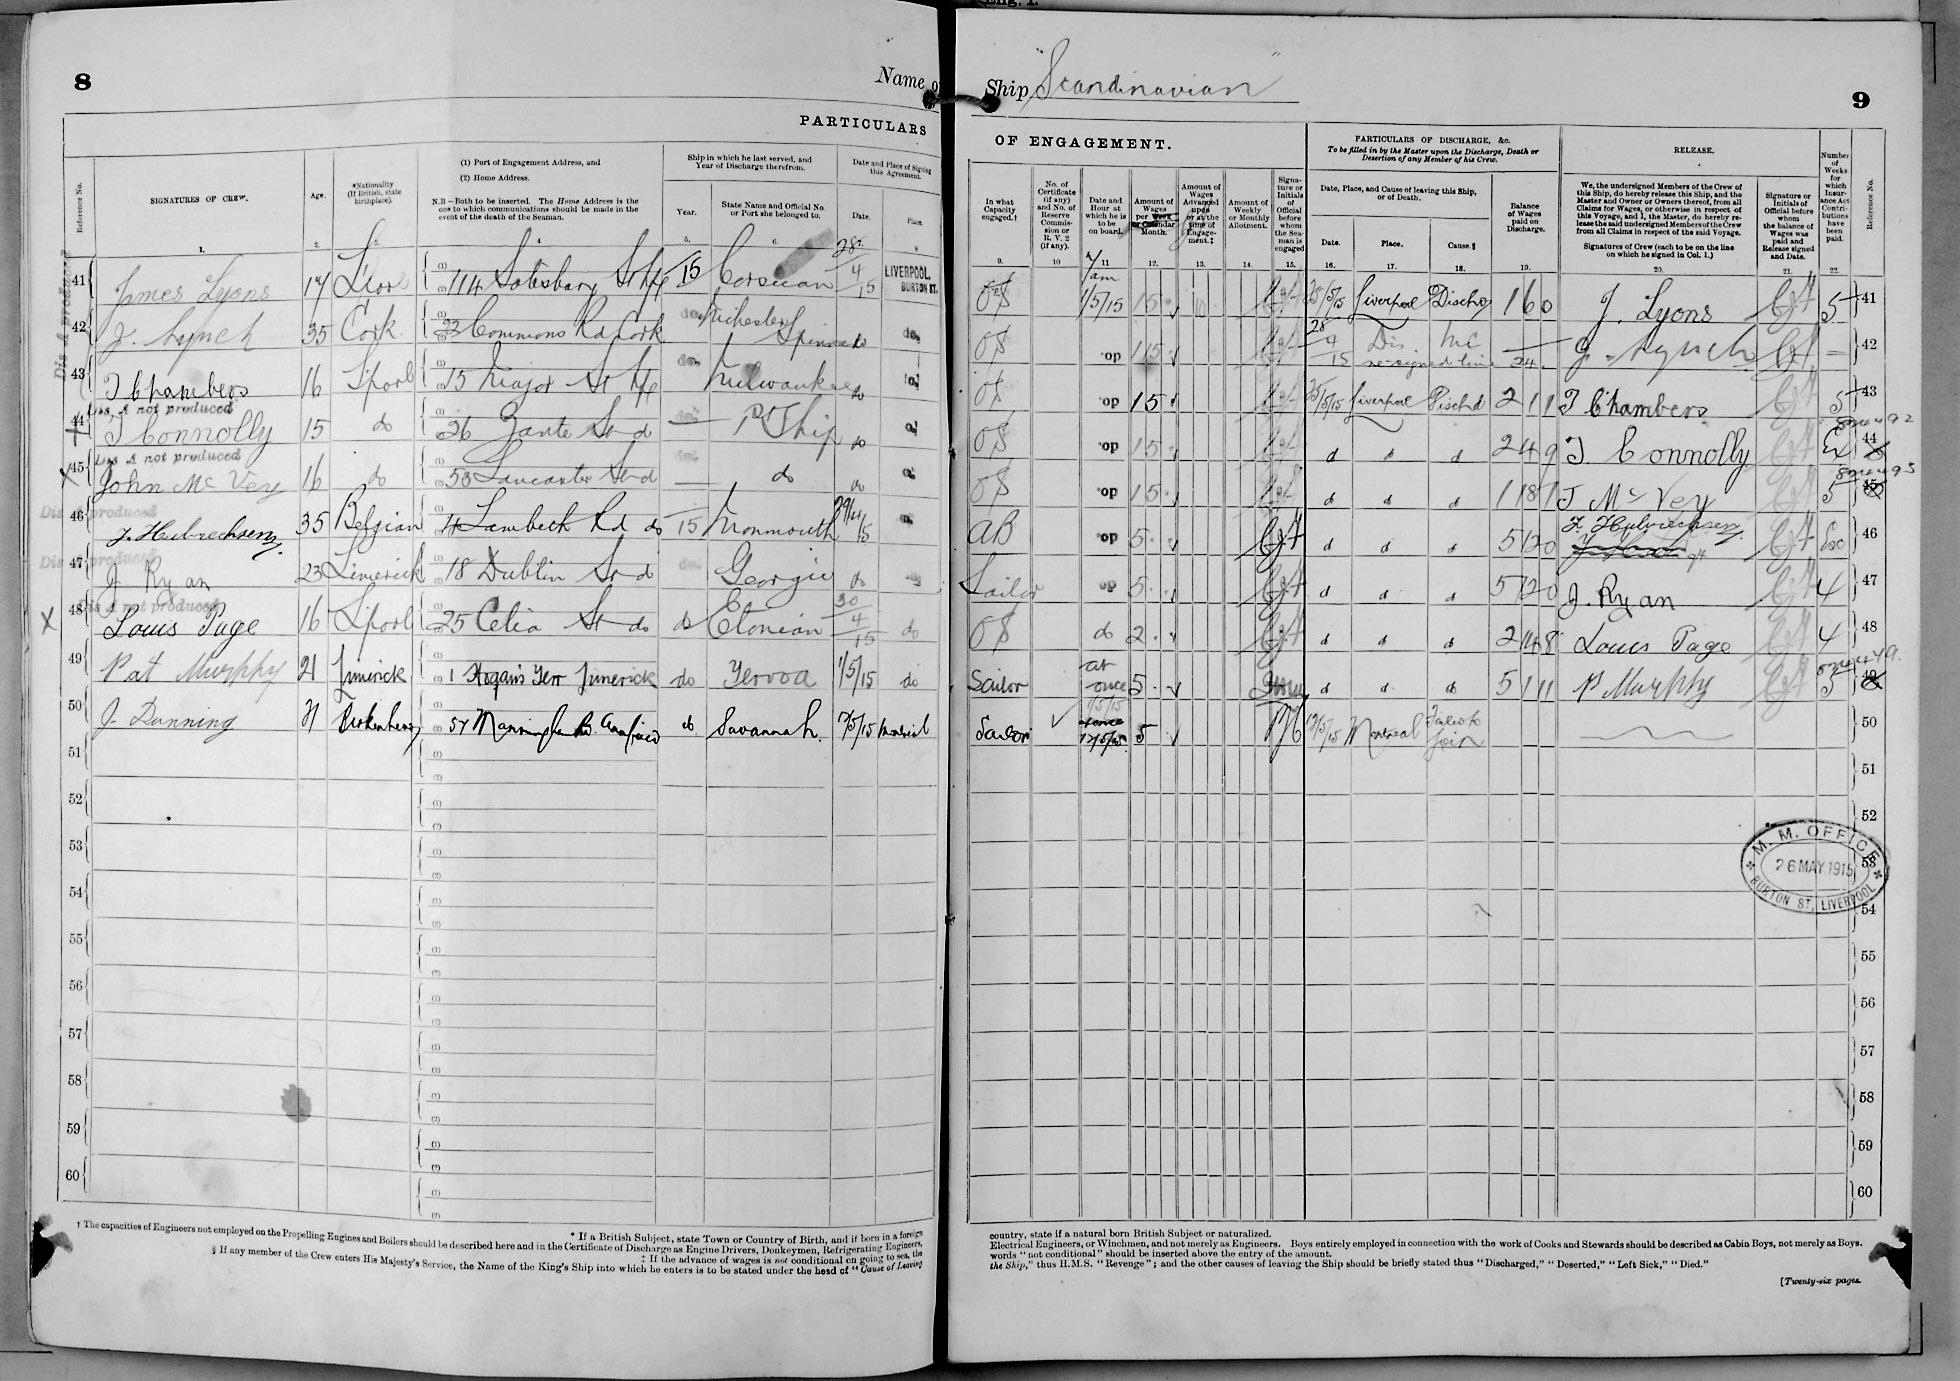 8
Name of
PARTICULARS
Reference No.
SIGNATURES OF CREW.
Age.
*Nationality
(If British, state
birthplace).
(1) Port of Engagement Address, and
(2) Home Address.
N.B.—Both to be inserted. The Home Address is the
one to which communications should be made in the
event of the death of the Seaman.
Ship in which he last served, and
Year of Discharge therefrom.
Year.
State Name and Official No.
or Port she belonged to.
Date and Place of Signing
this Agreement.
Date.
Place.
1. 2. 3. 5. 6. 8
41 James Lyons 17 L'pool 114 Salisbury St 15 Corsican 28/4/15 LIVERPOOL, BURTON ST.
42 J. Lynch 35 Cork 22 Commons Rd Cork do.
43 T Chambers 16 L'pool 15 Major St Milwaukee do
Dis A not produced
44 T Connolly 15 do 26 Zante St d — 1st Ship do
Dis A not produced
45 John Mc Vey 16 do 53 Lancaster St d — do do
Dis A produced
46 35 Belgian Lambeth Rd do 15 Monmouth 29/4/15
47 J. Ryan 23 Limerick 18 Dublin St d do Georgic do
Dis A not produced
48 Louis Page 16 L'pool 25 Celia St do do Etonian 30/4/15 do
49 Pat Murphy 21 Limerick 1 Hogans Terr Limerick do 1/5/15 do
50 J. Dunning 21 Birkenhead do Savannah. 12/5/15 Montreal
51
52
53
54
55
56
57
58
59
60
† The capacities of Engineers not employed on the Propelling Engines and Boilers should be described here and in the Certificate of Discharge as Engine Drivers, Donkeymen, Refrigerating Engineers,
* If a British Subject, state Town or Country of Birth, and if born in a foreign
‡ If the advance of wages is not conditional on going to sea, the
§ If any member of the Crew enters His Majesty's Service, the Name of the King's Ship into which he enters is to be stated under the head of "Cause of Leaving
Ship "Scandinavian"
9
OF ENGAGEMENT.
PARTICULARS OF DISCHARGE, &c.
To be filled in by the Master upon the Discharge, Death or
Desertion of any Member of his Crew.
RELEASE.
In what
Capacity
engaged.†
No. of
Certificate
(if any)
and No. of
Reserve
Commis-
sion or
R. V. 2
(if any).
Date and
Hour at
which he is
to be
on board.
Amount of
Wages
per Week
or Calendar
Month.
Amount of
Wages
Advanced
upon
or at the
time of
Engage-
ment.‡
Amount of
Weekly
or Monthly
Allotment.
Signa-
ture or
Initials
of
Official
before
whom
the Sea-
man is
engaged
Date, Place, and Cause of leaving this Ship,
or of Death.
Date.
Place.
Cause.§
Balance
of Wages
paid on
Discharge.
We, the undersigned Members of the Crew of
this Ship, do hereby release this Ship, and the
Master and Owner or Owners thereof, from all
Claims for Wages, or otherwise in respect of
this Voyage, and I, the Master, do hereby re-
lease the said undersigned Members of the Crew
from all Claims in respect of the said Voyage.
Signatures of Crew (each to be on the line
on which he signed in Col. 1.)
Signature or
Initials of
Official before
whom
the balance of
Wages was
paid and
Release signed
and Date.
Number
of
Weeks
for
which
Insur-
ance Act
Contri-
butions
have
been
paid.
Reference No.
9. 10 11 12. 13. 14. 15. 16. 17. 18. 19. 20. 21. 22.
OS 7 am 1/5/15 15 25/5/15 Liverpool Dischg 1 6 0 J. Lyons 5 41
OS op 15 28/4/15 Dis. J. Lynch 42
OS op 15 25/5/15 Liverpool Dischd 2 1 1 T Chambers 5 43
OS op 15 d d d 2 4 9 T. Connolly 44
OS op 15 d d d 1 18 1 J Mc Vey 5 45
AB op 5 d d d 5 12 0 46
Sailor op 5 d d d 5 12 0 J. Ryan 4 47
OS do 2 d d d 2 4 8 Louis Page 4 48
Sailor at once 5 d d do 5 1 11 P Murphy 5 49
Sailor 12/5/15 5 12/5/15 Montreal Failed to join 50
51
52
53
54
55
56
57
58
59
60
M. M. OFFICE
26 MAY 1915
BURTON ST, LIVERPOOL
country, state if a natural born British Subject or naturalized.
Electrical Engineers, or Winchmen, and not merely as Engineers. Boys entirely employed in connection with the work of Cooks and Stewards should be described as Cabin Boys, not merely as Boys.
words "not conditional" should be inserted above the entry of the amount.
the Ship," thus H.M.S. "Revenge"; and the other causes of leaving the Ship should be briefly stated thus "Discharged," "Deserted," "Left Sick," "Died."
[Twenty-six pages.